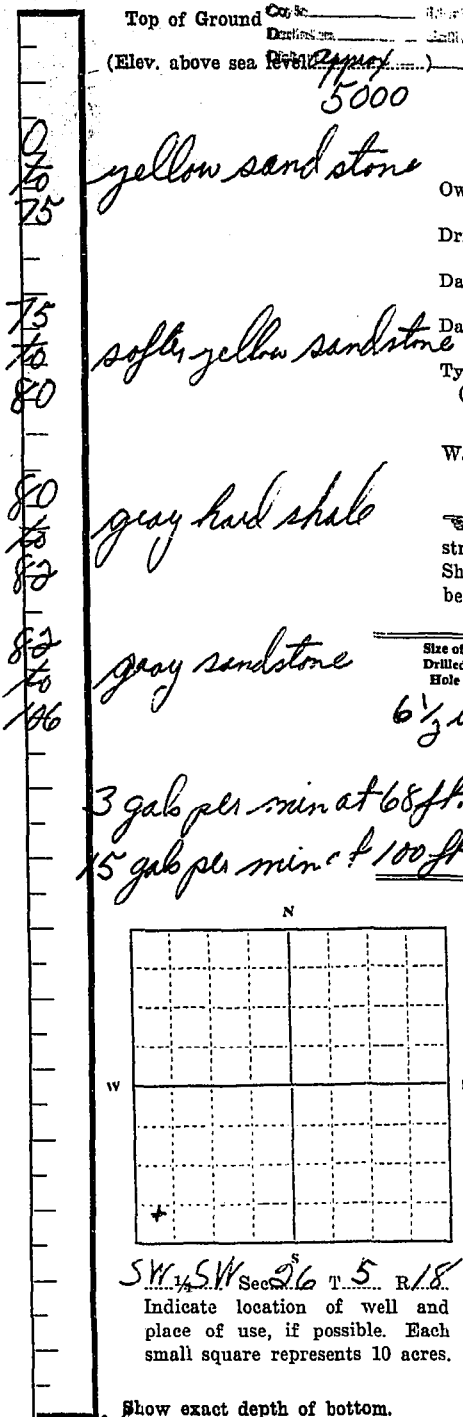 Top of Ground
(Elev. above sea level approx )
5000
0
to
75
yellow sand stone
Ow
Dr
Da
75
to
80
softer yellow sandstone
Da
Ty
(
W
80
to
82
gray hard shale
str
Sh
be
82
to
106
gray sandstone
Size of
Drilled
Hole
6 1/2
3 gals per min at 68 ft.
15 gals per min at 100 ft
N
W
S
SW 1/4 SW Sec 26 T 5 R 18
Indicate location of well and
place of use, if possible. Each
small square represents 10 acres.
Show exact depth of bottom.